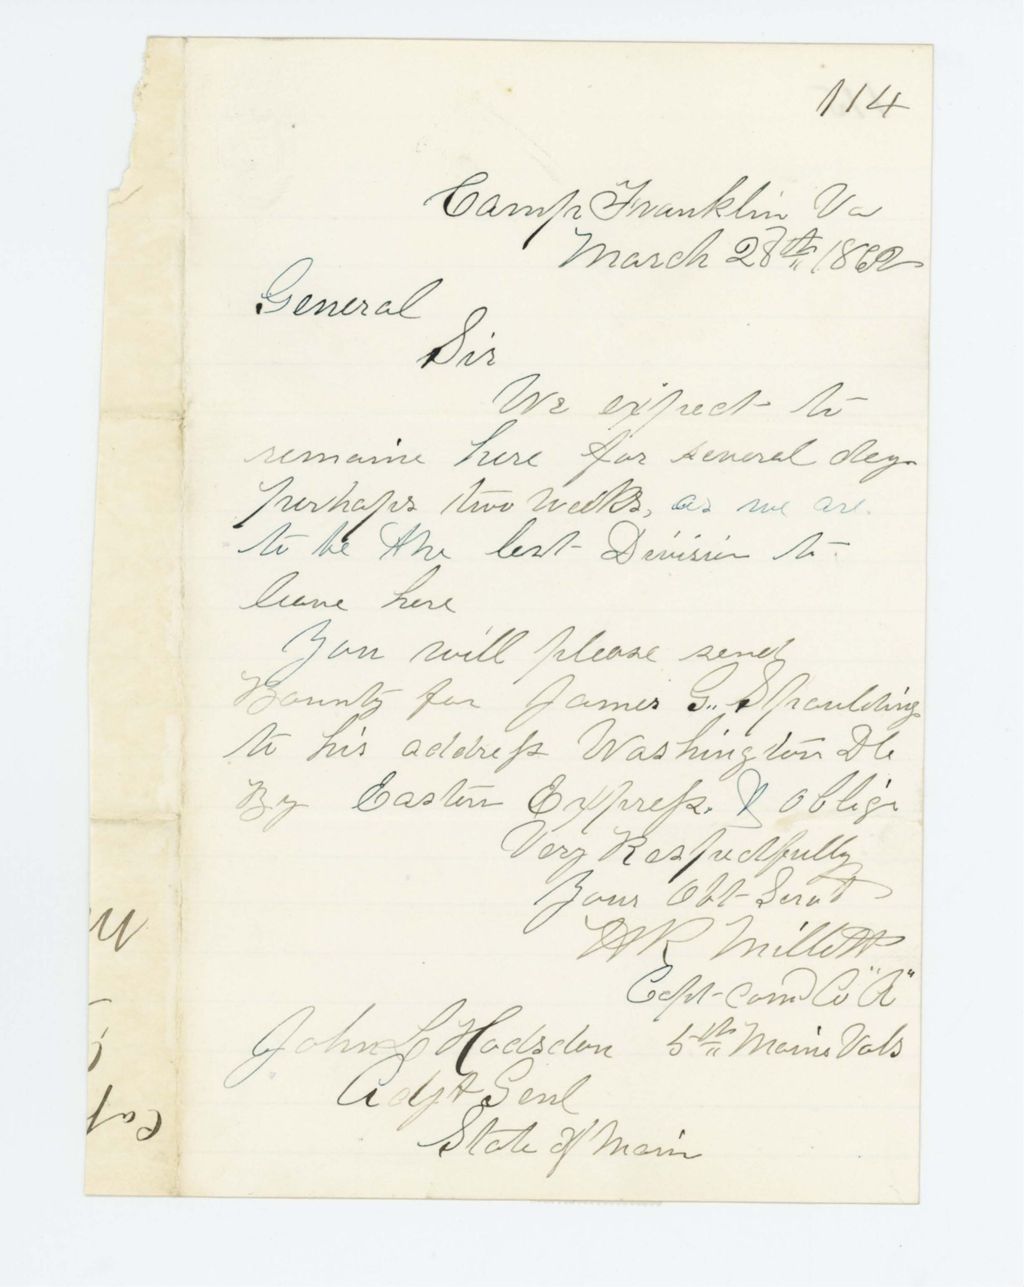 114
Camp Franklin Va
March 28th 1862
General
Sir
We expect to
remaine here for several days
perhaps two weeks, as we are
to be the last Division to
leave here
You will please send
Bounty for James G. Spaulding
to his address Washington DC
By Eastern Express. & oblige
Very Respectfully
Your Obt Servt
W R Millett
Capt com'd Co "A"
John L Hodsdon 5th Maine Vols
Adjt Genl
State of Main